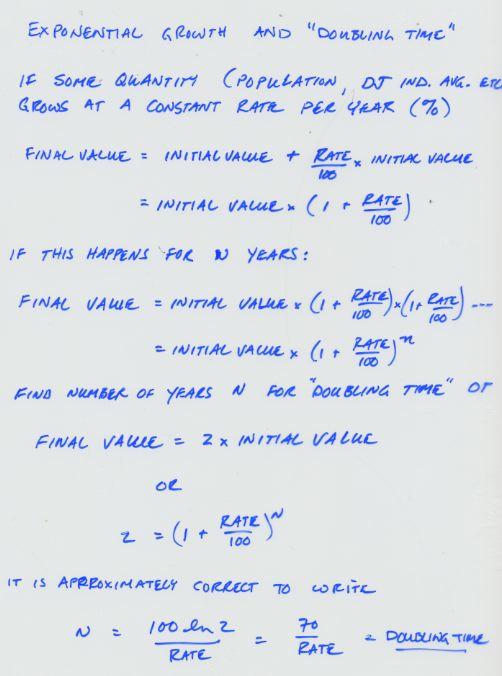 EXPONENTIAL GROWTH AND "DOUBLING TIME"
IF SOME QUANTITY (POPULATION, DJ IND. AVG. ETC
GROWS AT A CONSTANT RATE PER YEAR (%)
FINAL VALUE = INITIAL VALUE + RATE/100 × INITIAL VALUE
= INITIAL VALUE × (1 + RATE/100)
IF THIS HAPPENS FOR N YEARS:
FINAL VALUE = INITIAL VALUE × (1 + RATE/100)×(1+ RATE/100) ---
= INITIAL VALUE × (1 + RATE/100)^n
FIND NUMBER OF YEARS N FOR "DOUBLING TIME" OF
FINAL VALUE = 2 × INITIAL VALUE
OR
2 = (1 + RATE/100)^N
IT IS APPROXIMATELY CORRECT TO WRITE
N = 100 ln 2/RATE = 70/RATE = DOUBLING TIME